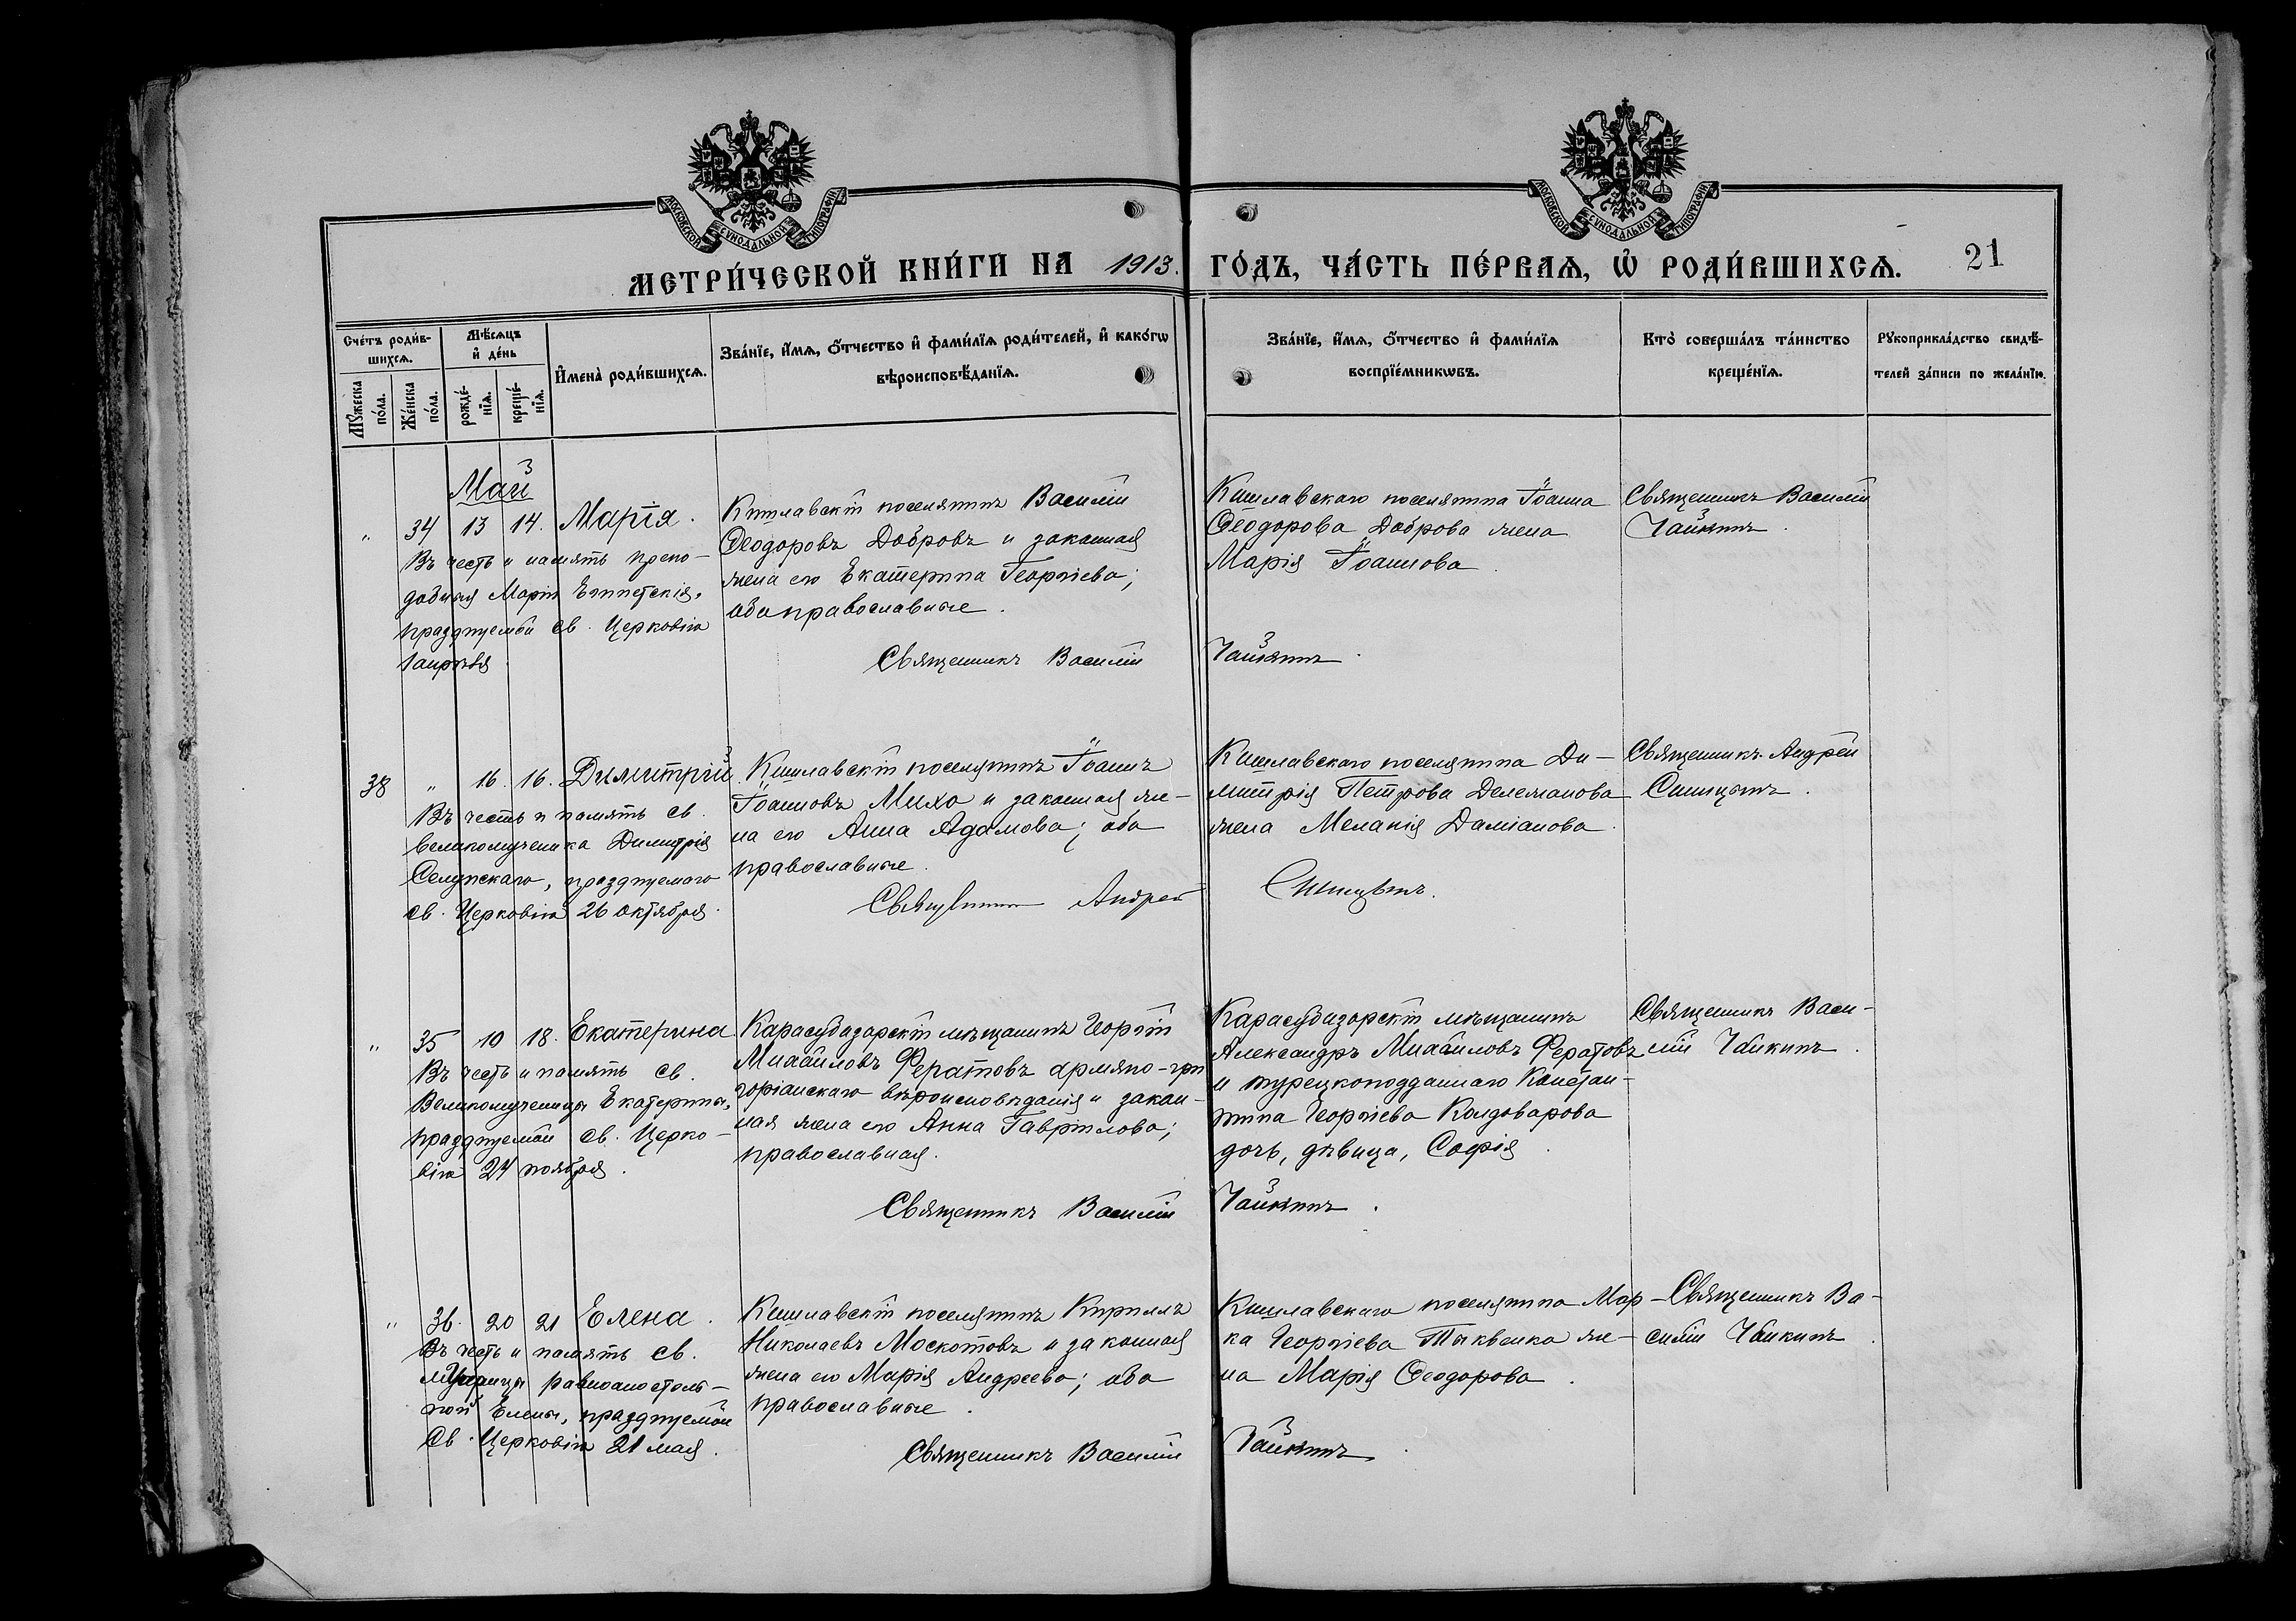 МОСКОВСКОЙ СѴНОДАЛЬНОЙ ТИПОГРАФІИ
МОСКОВСКОЙ СѴНОДАЛЬНОЙ ТИПОГРАФІИ
МЕТРИ́ЧЕСКОЙ КНИ́ГИ НА 1913. ГО́ДЪ, ЧА́СТЬ ПЕ́РВАѦ, Ѡ҆ РОДИ́ВШИХСѦ. 21
Сче́тъ роди́в-
шихсѧ.
Мꙋ́жеска
по́ла.
Же́нска
по́ла.
Мѣ́сѧцъ
и҆ де́нь
рожде́-
нїѧ.
креще́-
нїѧ.
И҆мена̀ роди́вшихсѧ.
Зва́нїе, и҆́мѧ, ѻ҆́тчество и҆ фами́лїѧ роди́телей, и҆ како́гѡ
вѣроисповѣ́данїѧ.
Зва́нїе, и҆́мѧ, ѻ҆́тчество и҆ фами́лїѧ
воспрїе́мникѡвъ.
Кто̀ соверша́лъ та́инство
креще́нїѧ.
Рꙋкоприкла́дство свидѣ́-
телей за́писи по жела́нїю.
Май
" 34 13 14. Марія.
Въ честь и память препо-
добныя Маріи Египетскія,
празднуемой св. Церковію
1 апрѣля.
Кишлавскій поселянинъ Василій
Ѳеодоровъ Добровъ и законная
жена его Екатерина Георгіева;
оба православные.
Священникъ Василій Чайкинъ.
Кишлавскаго поселянина Іоанна
Ѳеодорова Доброва жена
Марія Іоаннова.
Священникъ Василій
Чайкинъ.
38 " 16. 16. Димитрій
Въ честь и память св.
великомученика Димитрія
Селунскаго, празднуемаго
св. Церковію 26 октября.
Кишлавскій поселянинъ Іоаннъ
Іоанновъ Михо и законная же-
на его Анна Адамова; оба
православные.
Священникъ Андрей Синицынъ.
Кишлавскаго поселянина Ди-
митрія Петрова жена Меланія Даміанова.
Священникъ Андрей
Синицынъ.
" 35 10 18. Екатерина
Въ честь и память св.
Великомученицы Екатерины,
празднуемой св. Церко-
вію 24 ноября.
Карасубазарскій мѣщанинъ Георгій
Михайловъ Фератовъ армяно-гри-
горіанскаго вѣроисповѣданія и закон-
ная жена его Анна Гавріилова;
православная.
Священникъ Василій Чайкинъ.
Карасубазарскій мѣщанинъ
Александръ Михайловъ Фератовъ
и турецкоподданнаго Констан-
тина Георгіева Колдоварова
дочь, дѣвица, Софія.
Священникъ Васи-
лій Чайкинъ.
" 36. 20 21 Елена.
Въ честь и память св.
Царицы равноапостоль-
ной Елены, празднуемой
Св. Церковію 21 мая.
Кишлавскій поселянинъ Кириллъ
Николаевъ Москотовъ и законная
жена его Марія Андреева; оба
православные.
Священникъ Василій Чайкинъ
Кишлавскаго поселянина Мар-
ка Георгіева же-
на Марія Ѳеодорова.
Священникъ Ва-
силій Чайкинъ.